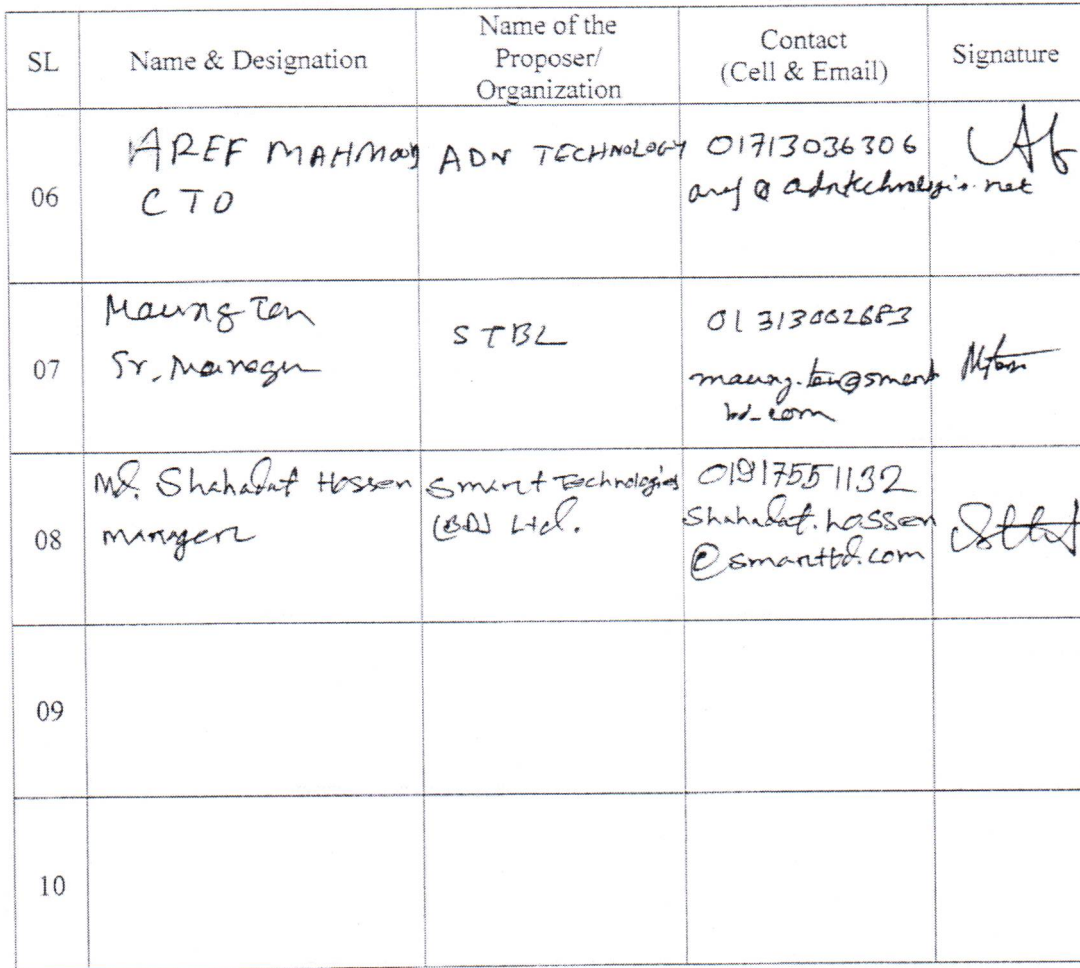 SL
Name & Designation
Name of the
Proposer/
Organization
Contact
(Cell & Email)
Signature
06
AREF MAHMOOD
CTO
ADN TECHNOLOGY
01713036306
07
Maung Tan
Sr. Manager
STBL
01313002683
08
Md. Shahadat Hossen
Manager
Smart Technologies
(BD) Ltd.
01917551132
Shahadat.hossen
@smartbd.com
09
10